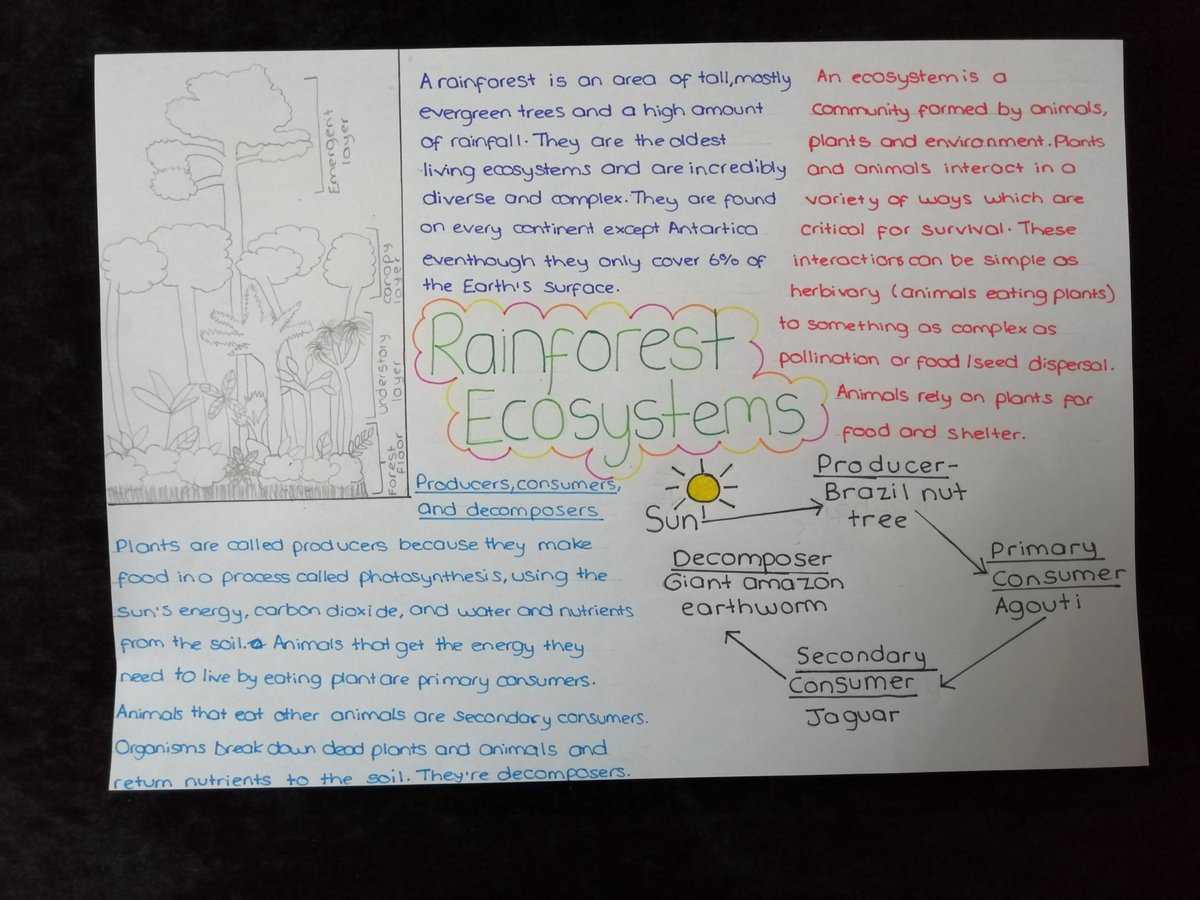 Emergent layer
canopy layer
understory layer
Forest floor
A rainforest is an area of tall, mostly
evergreen trees and a high amount
of rainfall. They are the oldest
living ecosystems and are incredibly
diverse and complex. They are found
on every continent except Antartica
eventhough they only cover 6% of
the Earth's surface.
An ecosystem is a
community formed by animals,
plants and environment. Plants
and animals interact in a
variety of ways which are
critical for survival. These
interactions can be simple as
herbivory (animals eating plants)
to something as complex as
pollination or food/seed dispersal.
Animals rely on plants for
food and shelter.
Rainforest
Ecosystems
Producers, consumers,
and decomposers
Plants are called producers because they make
food in a process called photosynthesis, using the
sun's energy, carbon dioxide, and water and nutrients
from the soil. Animals that get the energy they
need to live by eating plant are primary consumers.
Animals that eat other animals are secondary consumers.
Organisms break down dead plants and animals and
return nutrients to the soil. They're decomposers.
Sun
Producer-
Brazil nut
tree
Primary
Consumer
Agouti
Secondary
Consumer
Jaguar
Decomposer
Giant amazon
earthworm